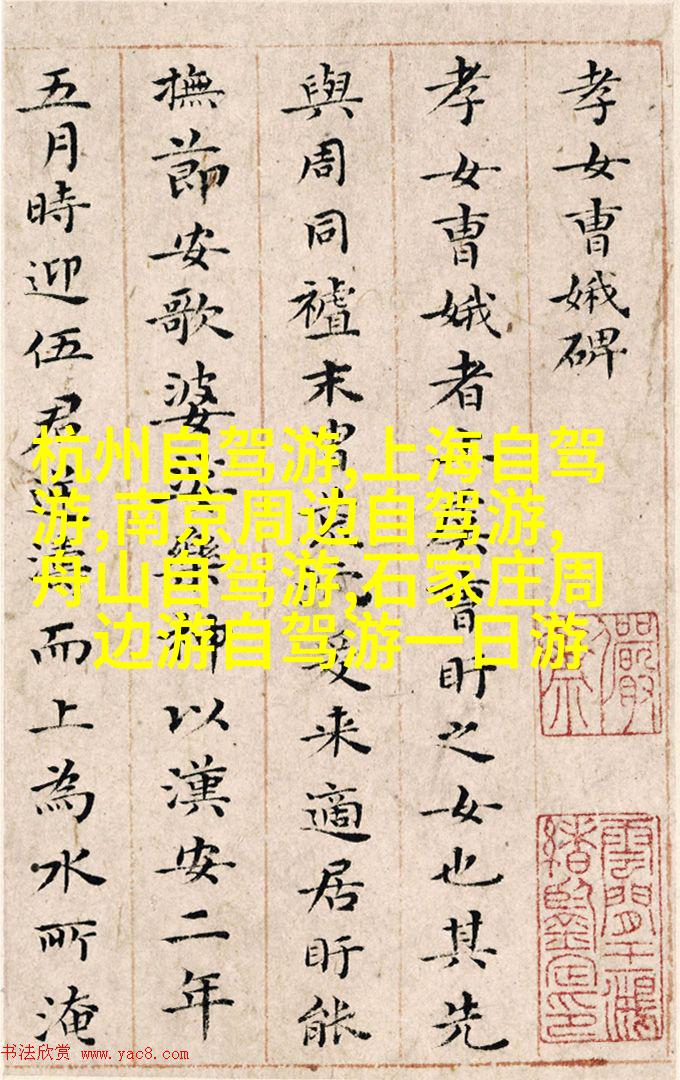 孝女曹娥碑
孝女曹娥者盱之女也其先
與周同末爰来適居盱能
撫節安歌婆娑樂神以漢安二年
五月時迎伍君逆濤而上為水所淹
杭州自驾游,上海自驾
游,南京周边自驾游,
舟山自驾游,石家庄周
边游自驾游一日游
儼齋
雲間王鴻
緒鑒定印
书法欣赏 www.yac8.com